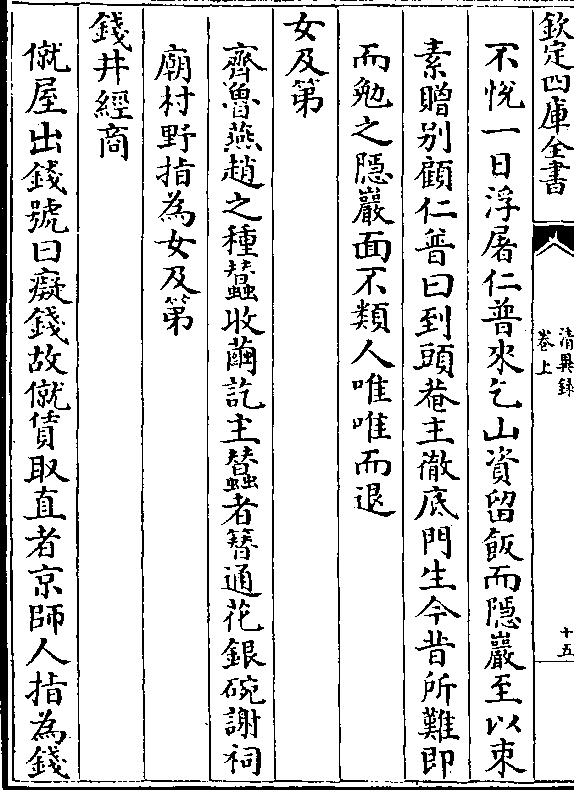 欽定四庫全書
清異錄
卷上
十五
不悅一日浮屠仁普來乞山資留飯而隱巖至以束
素贈别顧仁普曰到頭菴主徹底門生今昔所難即
而勉之隱巖面不類人唯唯而退
女及第
齊魯燕趙之種蠶收繭訖主蠶者簪通花銀碗謝祠
廟村野指為女及第
錢井經商
僦屋出錢號曰癡錢故僦賃取直者京師人指為錢